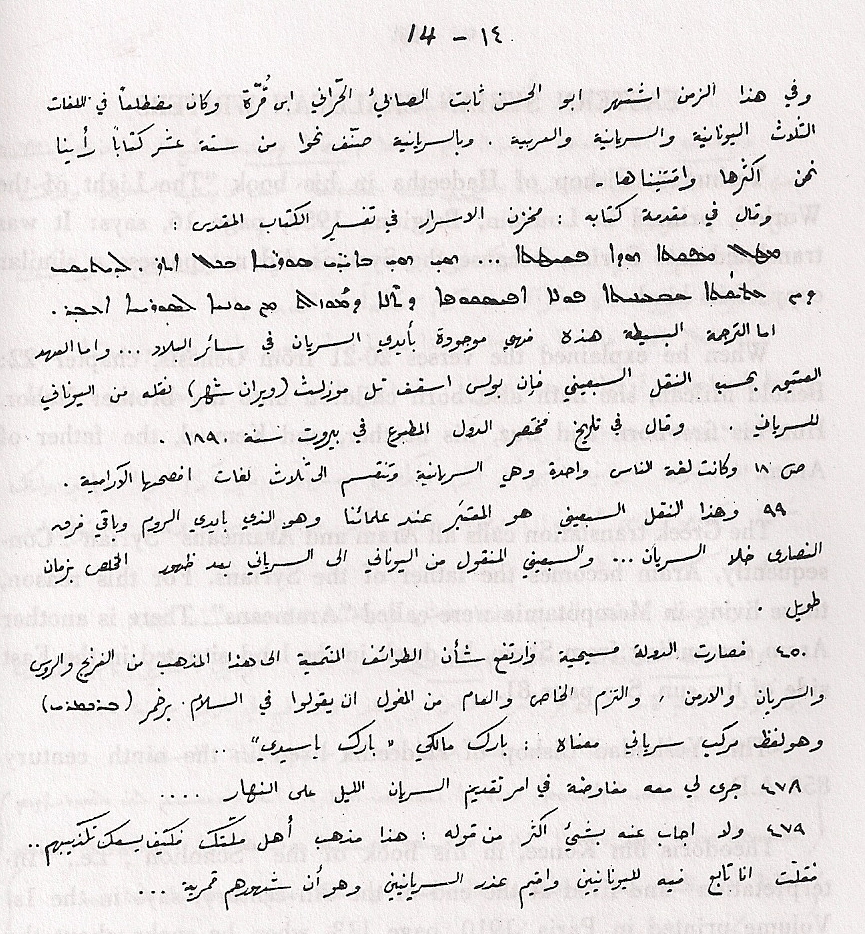 ١٤ - 14
وفي هذا الزمن اشتهر ابو الحسن ثابت الصابئ الحرّاني ابن قُرّة وكان مضطلعاً في اللغات
الثلاث اليونانية والسريانية والعربية . وبالسريانية صنّف نحوا من ستة عشر كتاباً رأينا
نحن اكثرها واقتنيناها .
وقال في مقدمة كتابه مخزن الاسرار في تفسير الكتاب المقدس :
اما الترجمة البسيطة هذه فهي موجودة بأيدي السريان في سائر البلاد ... واما العهد
العتيق بحسب النقل السبعيني فان بولس اسقف تل موزلت (ويران شهر) نقله من اليوناني
للسرياني . وقال في تاريخ مختصر الدول المطبوع في بيروت سنة ١٨٩٠
ص ١٨ وكانت لغة الناس واحدة وهي السريانية وتنقسم الى ثلاث لغات افصحها الآرامية .
٩٩ وهذا النقل السبعيني هو المعتبَر عند علمائنا وهو الذي بايدي الروم وباقي فرق
النصارى خلا السريان ... والسبعيني المنقول من اليوناني الى السرياني بعد ظهور المخلص بزمان
طويل .
٤٥٠ فصارت الدولة مسيحية وارتفع شأن الطوائف المنتمية الى هذا المذهب من الفرنج والروس
والسريان والارمن ، والتزم الخاص والعام من المغول ان يقولوا في السلام برخمر (ܒܪܟܡܪܝ)
وهو لفظ مركب سرياني معناه : بارك مالكي " بارك ياسيدي" ..
٤٧٨ جرى لي معه مفاوضة في امر تقديم السريان الليل على النهار ....
٤٧٩ ولا اجاب عنه بشيئ اكثر من قوله : هذا مذهب أهل ملّتك فكيف يسعك تكذيبهم ..
فقلت انا تابع فيه لليونانيين واقيم عذر السريانيين وهو أن شهورهم قمرية ...